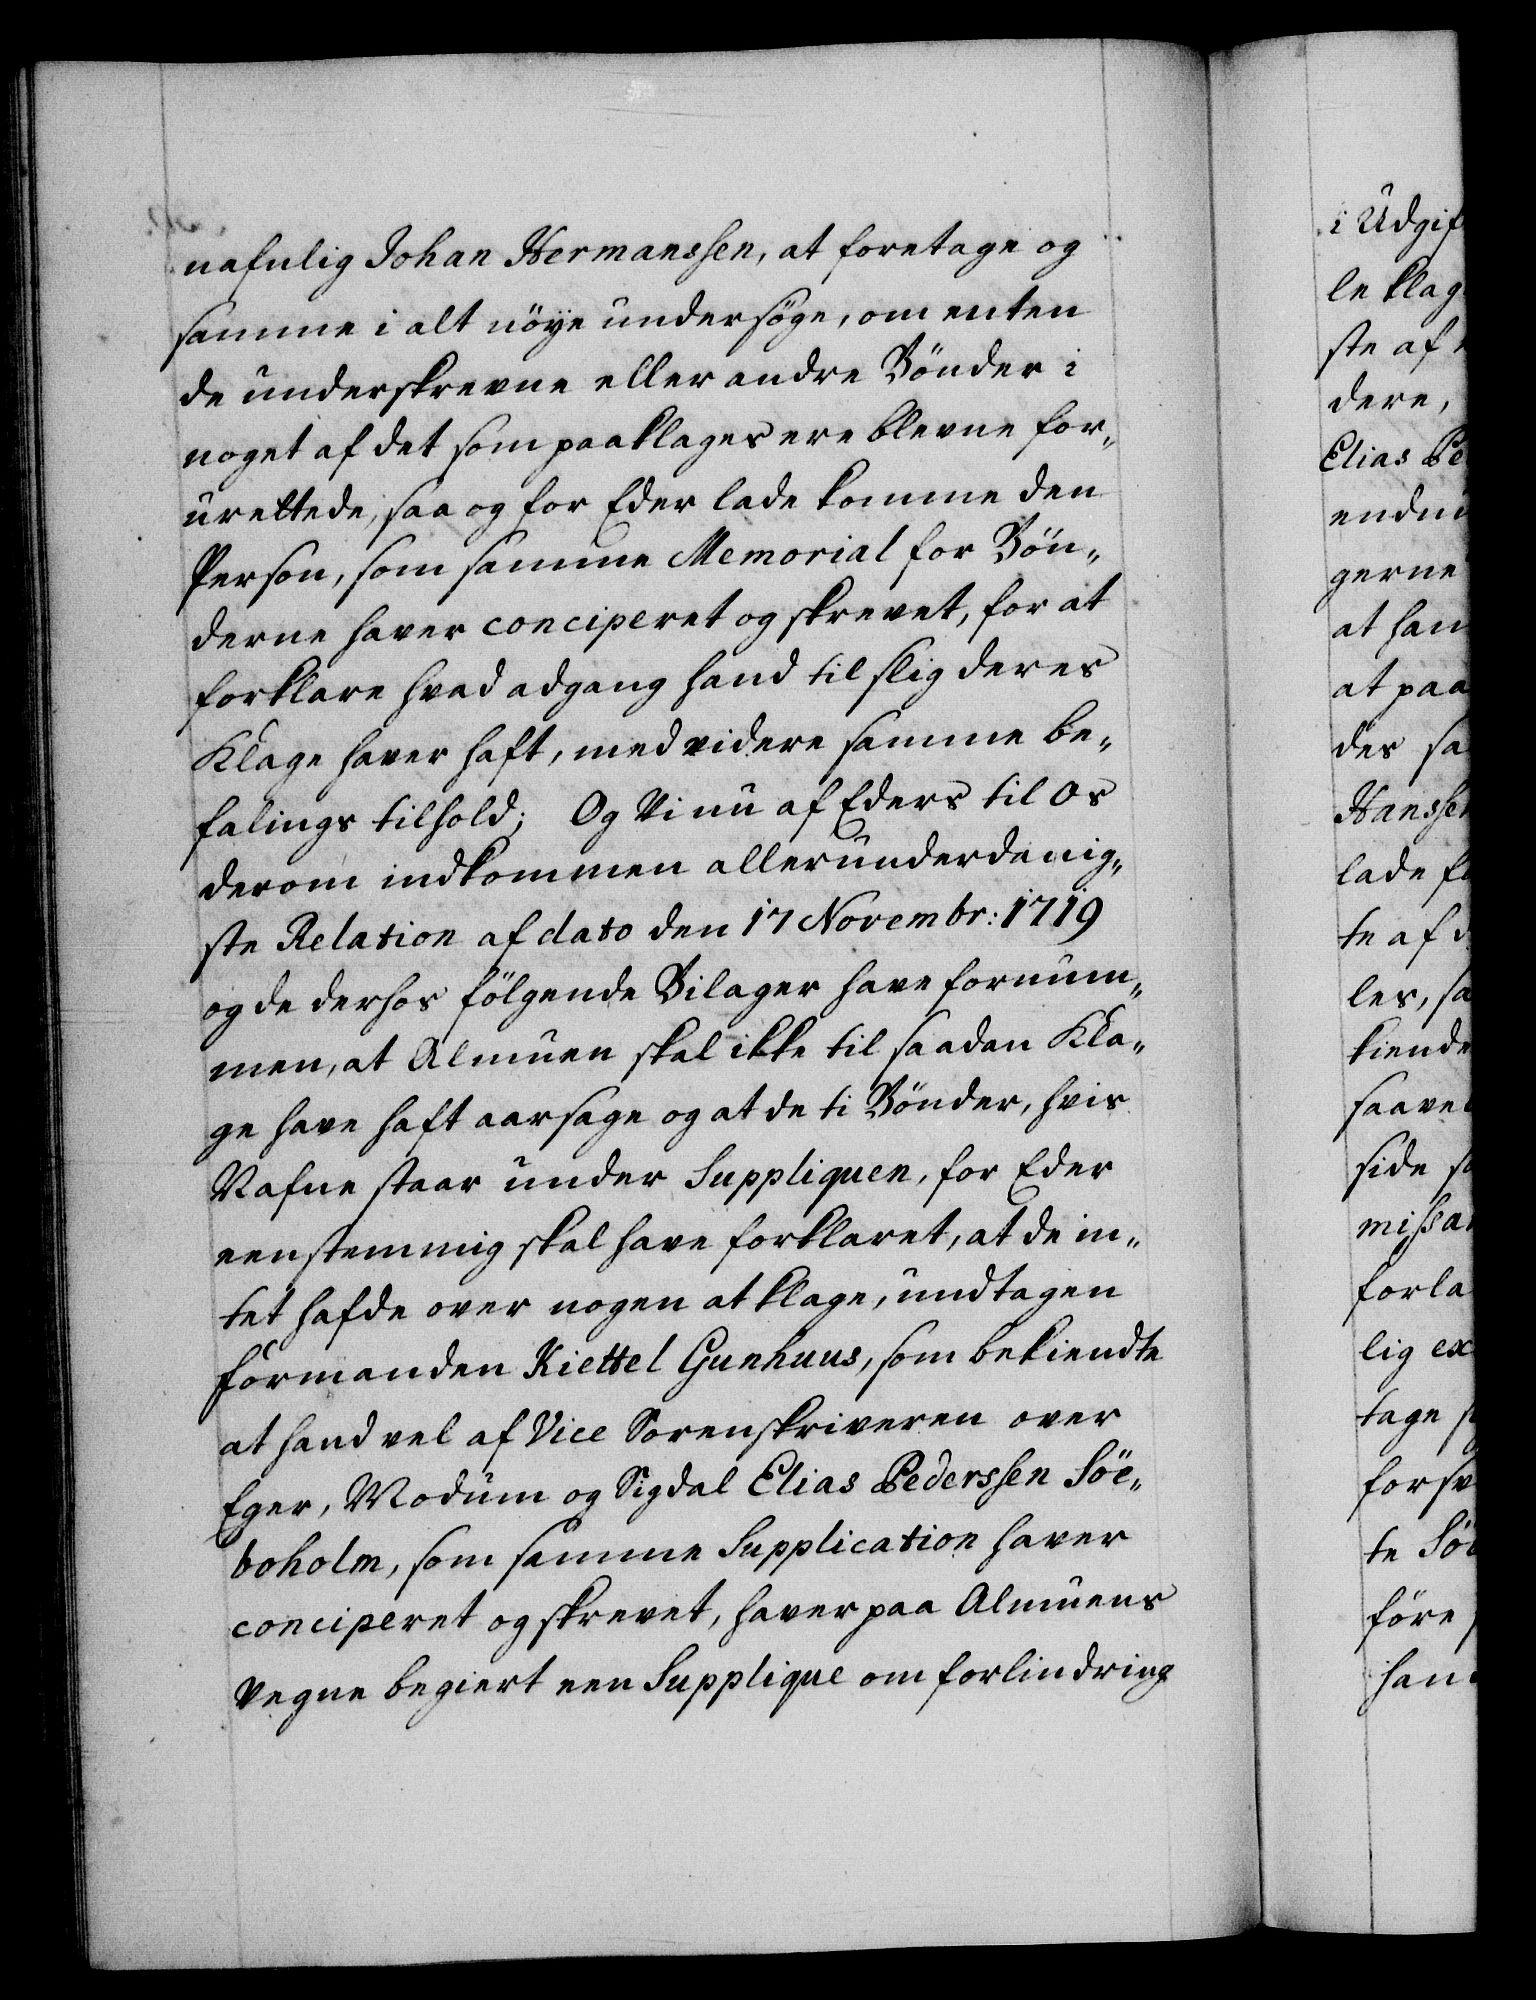 nafnlig Johan Hermanssen, at foretage og
samme i alt nöye undersöge, om enten
de underskrevne eller andre Bönder i
noget af det som paaklages ere blevne for„
urettede, saa og for Eder lade komme den
Person, som samme Memorial for Bön„
derne haver conciperet og skrevet, for at
forklare hvad adgang hand til slig deres
Klage haver haft, med videre samme be„
falings tilhold; Og Vi nu af Eders til Os
derom indkommen allerunderdanig„
ste Relation af dato den 17 Novembr: 1719
og de derhos fölgende Bilager have fornum„
men, at Almuen skal ikke til saadan Kla„
ge have haft aarsage og at de ti Bönder, hvis
Nafne staar under Suppliquen, for Eder
eenstemmig skal have forklaret, at de in„
tet hafde over nogen at klage, undtagen
Formanden Kiettel Gunhuus, som bekiendte
at hand vel af Vice Sorenskriveren over
Eger, Modum og Sigdal Elias Pederssen Söe„
boholm, som samme Supplication haver
conciperet og skrevet, haver paa Almuens
vegne begiert een Supplique om forlindring
i Udgif
le klag
ste af
dere,
Elias Pe
endnu
gerne
at han
at paa
des sa
Hanssen
lade
te af d
les, sa
kiende
saavel
side
missa
forla
lig ex
tage
forsv
te Söe
före
han